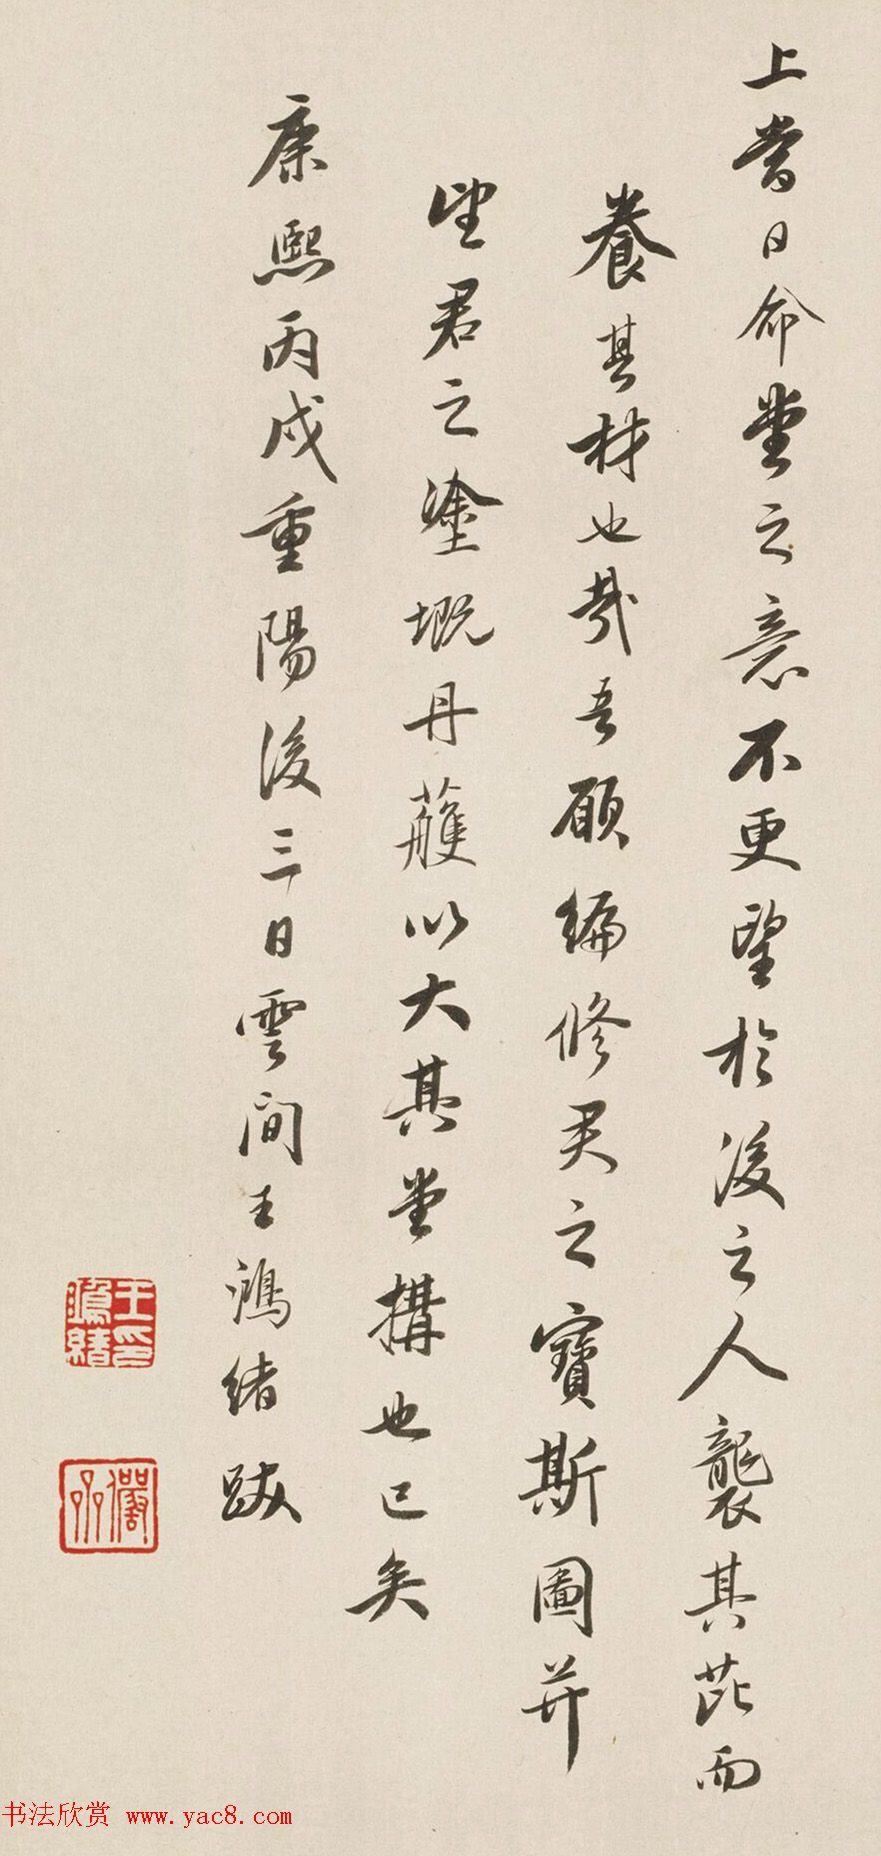 上嘗日命堂之意不更望於後之人襲其芘而
養其材也哉吾願編修君之寶斯圖并
望君之塗塈丹雘以大其堂構也已矣
康熙丙戌重陽後三日雲間王鴻緒跋
王鴻緒印
儼齋
书法欣赏 www.yac8.com